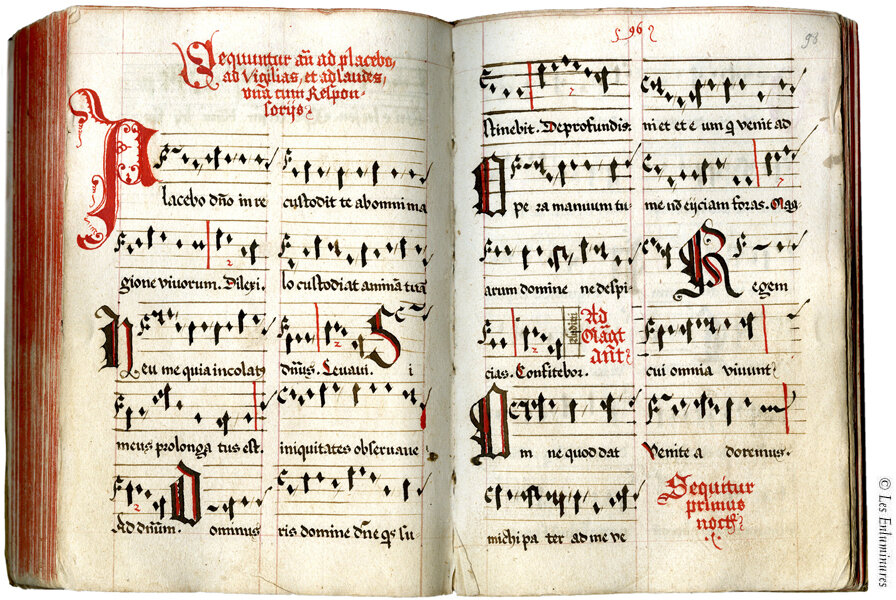 Sequuntur añ ad placebo,
ab Vigilias, et ad laudes,
vna cum Respon-
sorijs
Placebo dño in re
gione viuorum. Dilexi.
Heu me quia incolatꝰ
meus prolonga tus est.
Ad dnum. Dominus
custodit te ab omni ma
lo custodiat animā tuā
dñus. Leuaui. Si
iniquitates obseruaue
ris domine dñe qs su
96
98
stinebit. De profundis.
Opera manuum tu
arum domine ne despi
cias. Confitebor.
Ad
Magt
Añt
Omne quod dat
michi pa ter ad me ve
ni et et e um q venit ad
me nō eijciam foras. Mag-
Regem
cui omnia viuunt
Venite a doremus.
Sequitur
primus
noctꝰ
© Les Enluminures